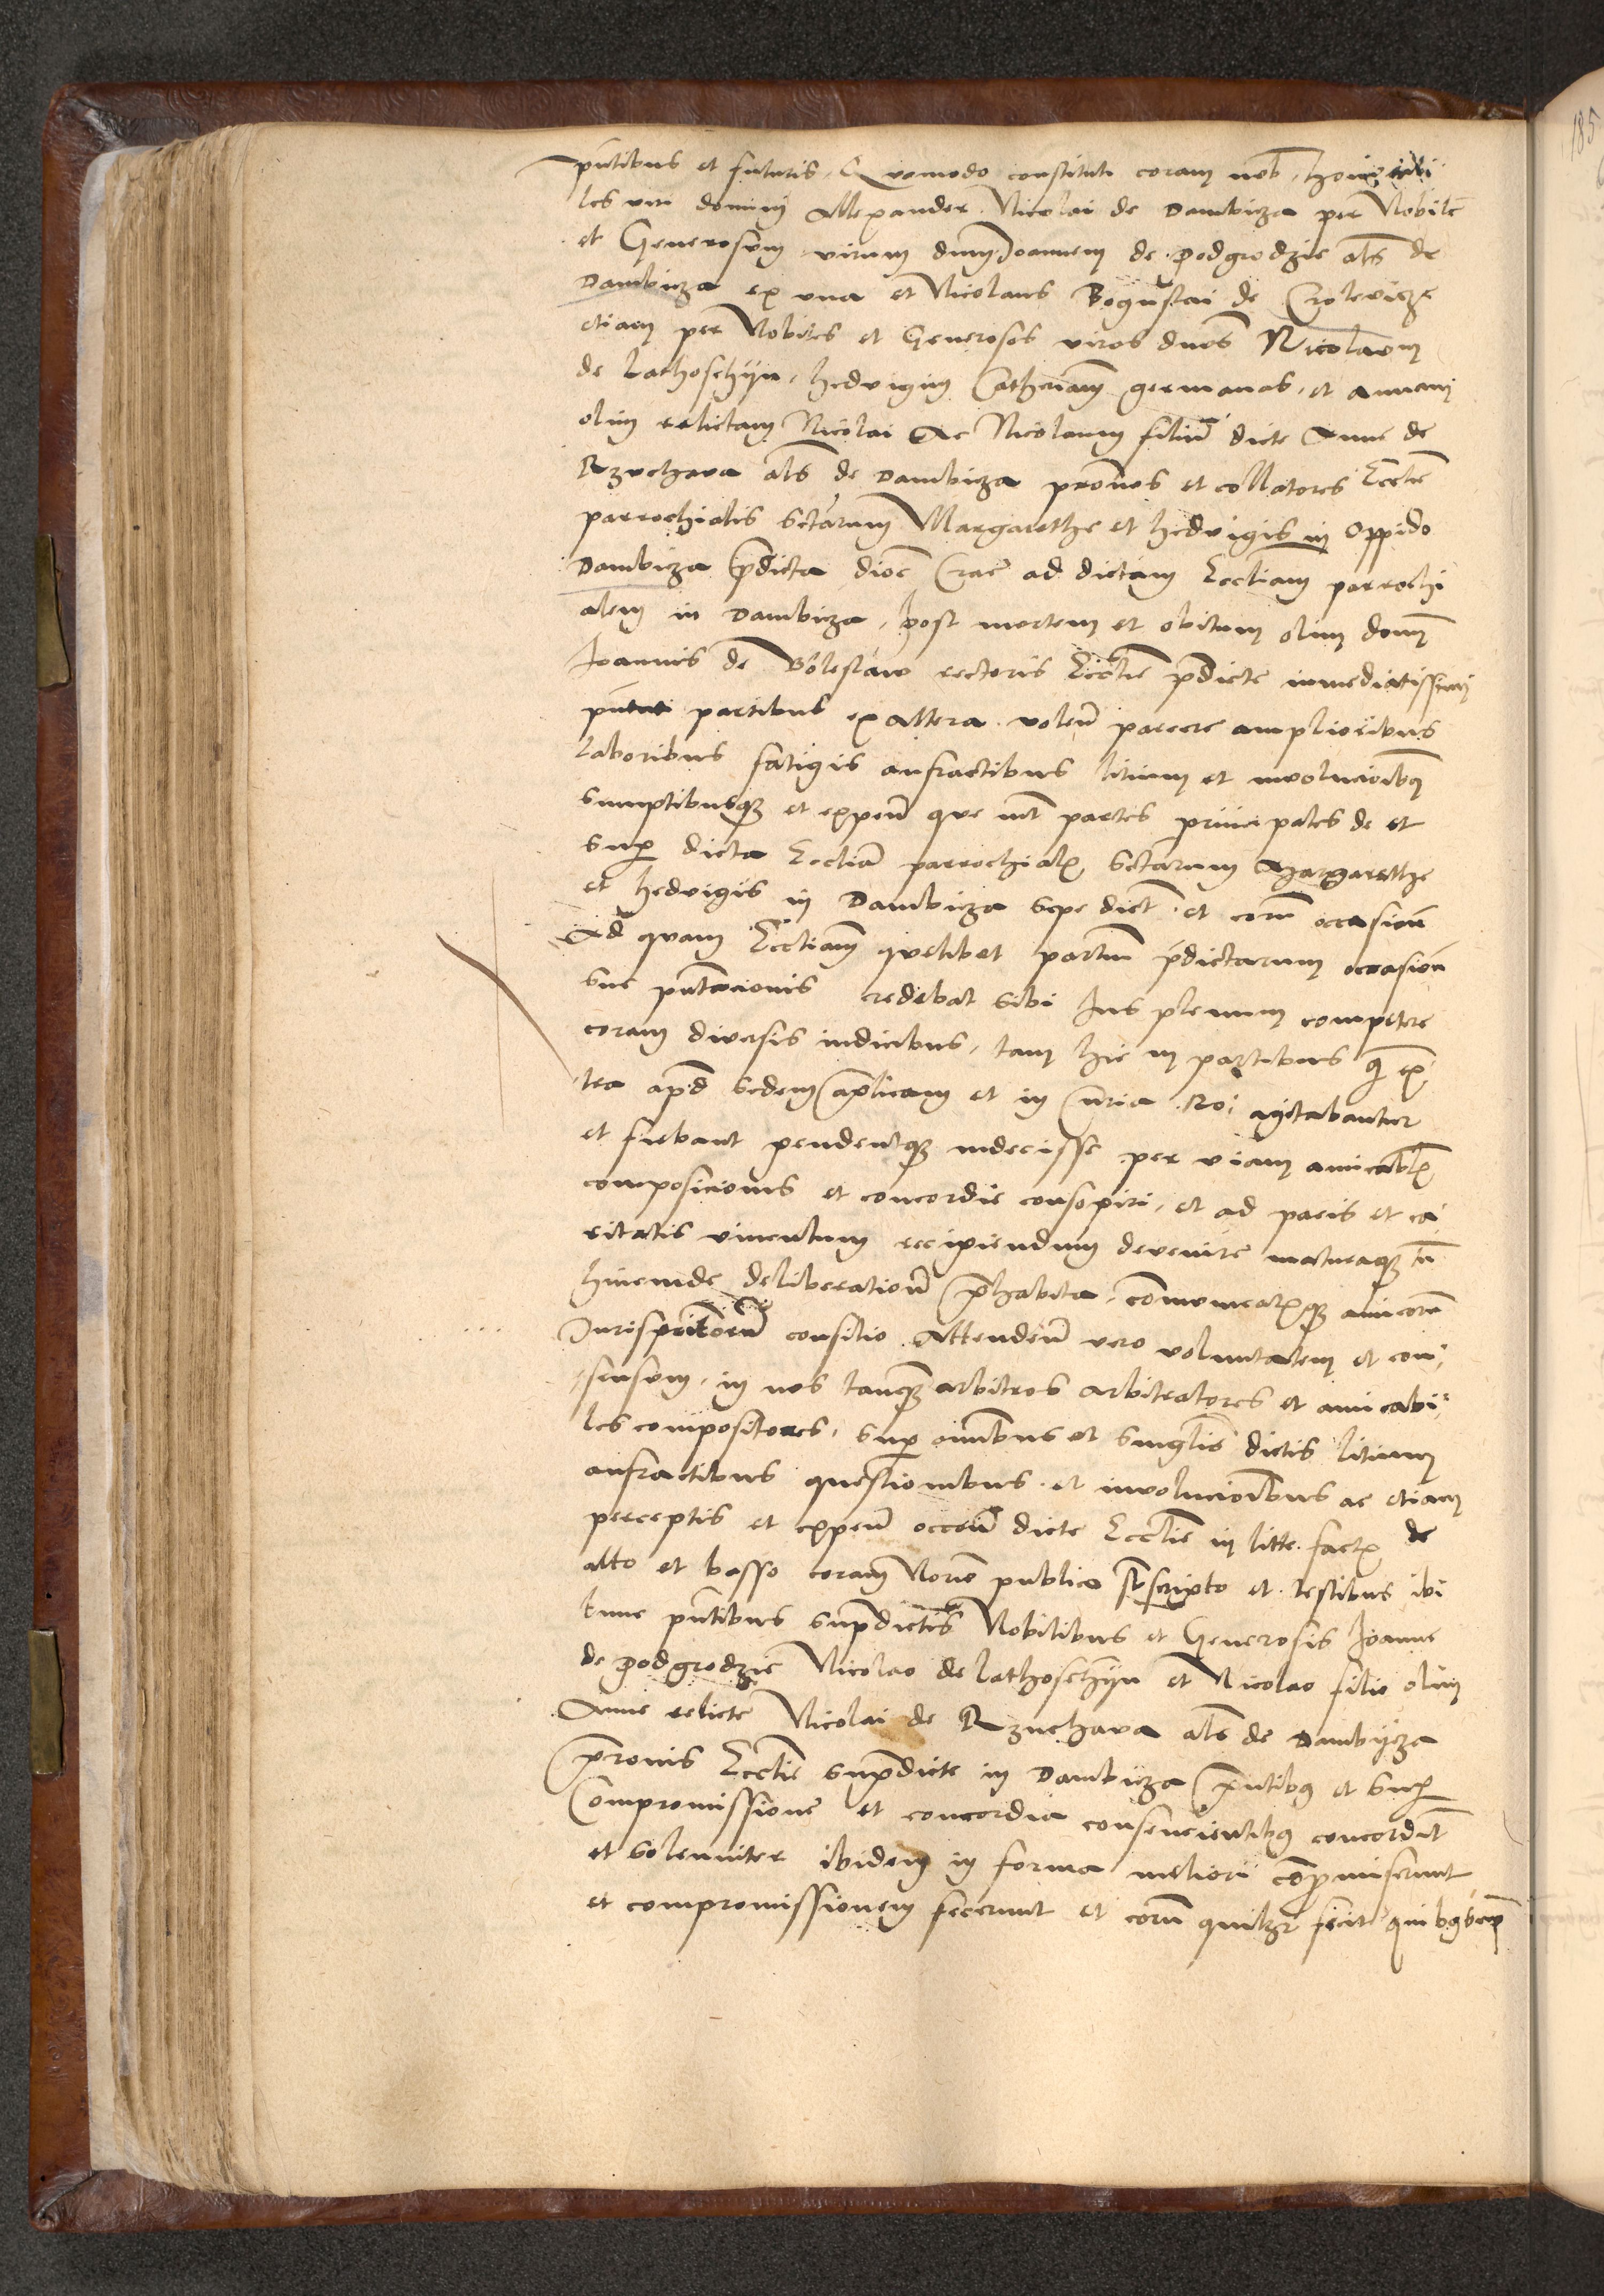 pntibus et futuris. Quomodo constituti coram nob. honorabi
les viri domini Allexander Nicolai de Dambicza per Nobilem
et Generosum virum dnm Joannem de Podgrodzie als de
Dambicza ex una et Nicolaus Boguslai de Crolevicze
etiam per Nobiles et Generosos viros dnos Nicolaum
de Lathoschyn, Hedvigim Catherinam germanas, et annam
olim relictam Nicolai Ac Nicolaum filium dicte Anne de
Rzuchava als de Dambicza pronos et collatores Ecclie
parrochialis sctarum Margarethe et hedvigis in Oppido
Dambicza predicta dioc Crac ad dictam Eccliam parrochi
alem in Dambicza, post mortem et obitum olim domi
Joannis de Boleslaw rectoris Ecclie predicte immediatissimi
pntati partibus ex altera. volen parcere amplioribus
laboribus fatigis anfractibus litium et involucioibus
sumptibusque et expen que int partes principales de et
super dicta Ecclia parrochiali sctarum Margarethe
et hedvigis in Dambicza sepe dict. et eorum occasion
Ad quam Eccliam quelibet partium predictarum occasion
sue pntacionis credebat sibi Jus plenum competere
coram diversis iudicibus, tam hic in partibus q ex
tra apud sedem aplicam et in Curia Ro: agitabantur
et fiebant pendentque indecisse per viam amicabilis
composicionis et concordie consopiri, et ad pacis et ca
ritatis vinculum recipiendum devenire maturaque tn
hincinde deliberation prehabita, communicatoque amicorum
Jurisperitorum consilio Attenden vero voluntatem et con
sensum, in nos tanquam arbitros arbitratores et amicabi
les compositores, super omnibus et singulis dictis litium
anfractibus questionibus. et involucionibus ac etiam
perceptis et expen occasion dicte Ecclie in litte. factis de
alto et basso coram Notario publico subscripto et testibus ibi
tunc pntibus supradictis Nobilibus et Generosis Joanne
de Podgrodzie Nicolao de Lathoschyn et Nicolao filio olim
Anne relicte Nicolai de Rzuchava als de Dambycza
pronis Ecclie supradicte in Dambicza pntibus et super
Compromissione et concordia consencientibus concordit
et solenniter ibidem in forma meliori compromiserunt
et compromissionem fecerunt et eorum quilibet fecit